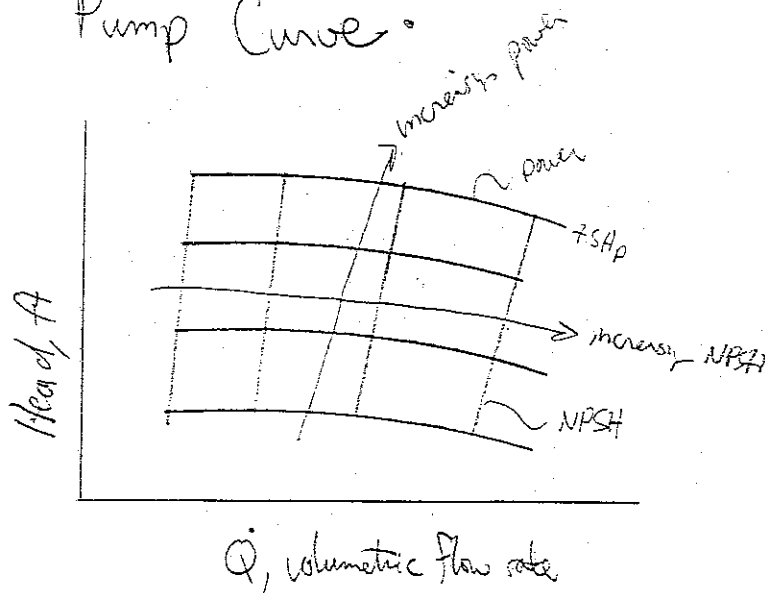 Pump Curve.
increasing power
power
7.5Hp
increasing NPSH
NPSH
Head, ft
Q̇, volumetric flow rate